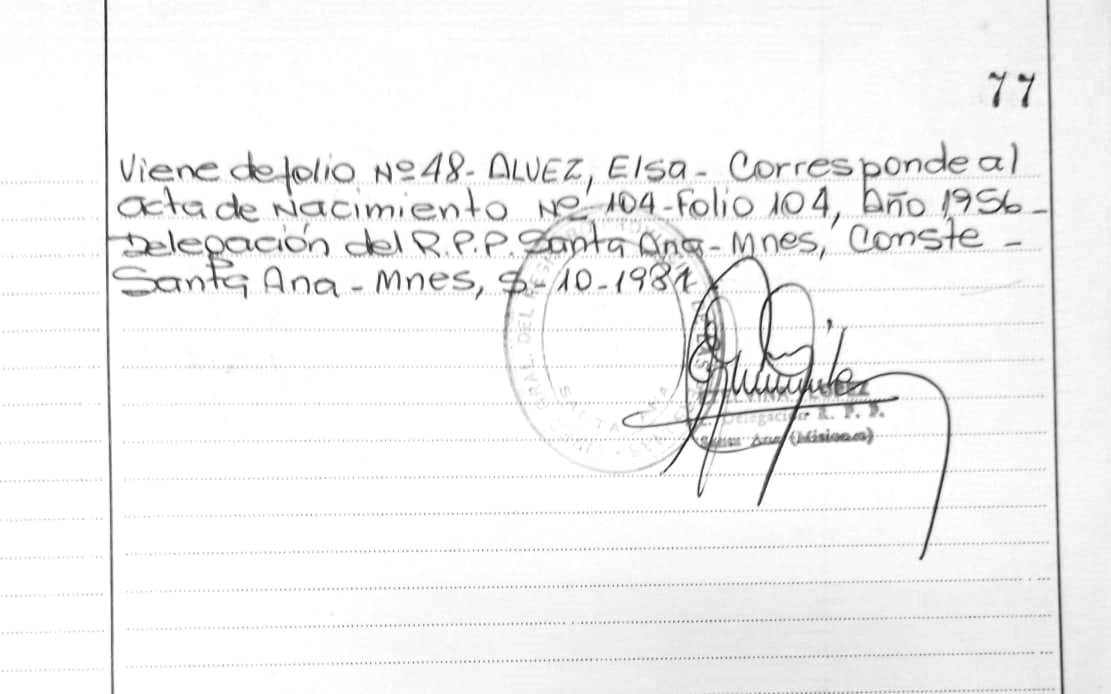 77
Viene de folio Nº 48- ALVEZ, Elsa - Corresponde al
acta de Nacimiento Nº 104 - Folio 104, Año 1956 -
Delegación del R.P.P. Santa Ana - Mnes, Conste -
Santa Ana - Mnes, 5-10-1981
GRAL. DEL
SANTA ANA
Delegación R. P. P.
Santa Ana (Misiones)